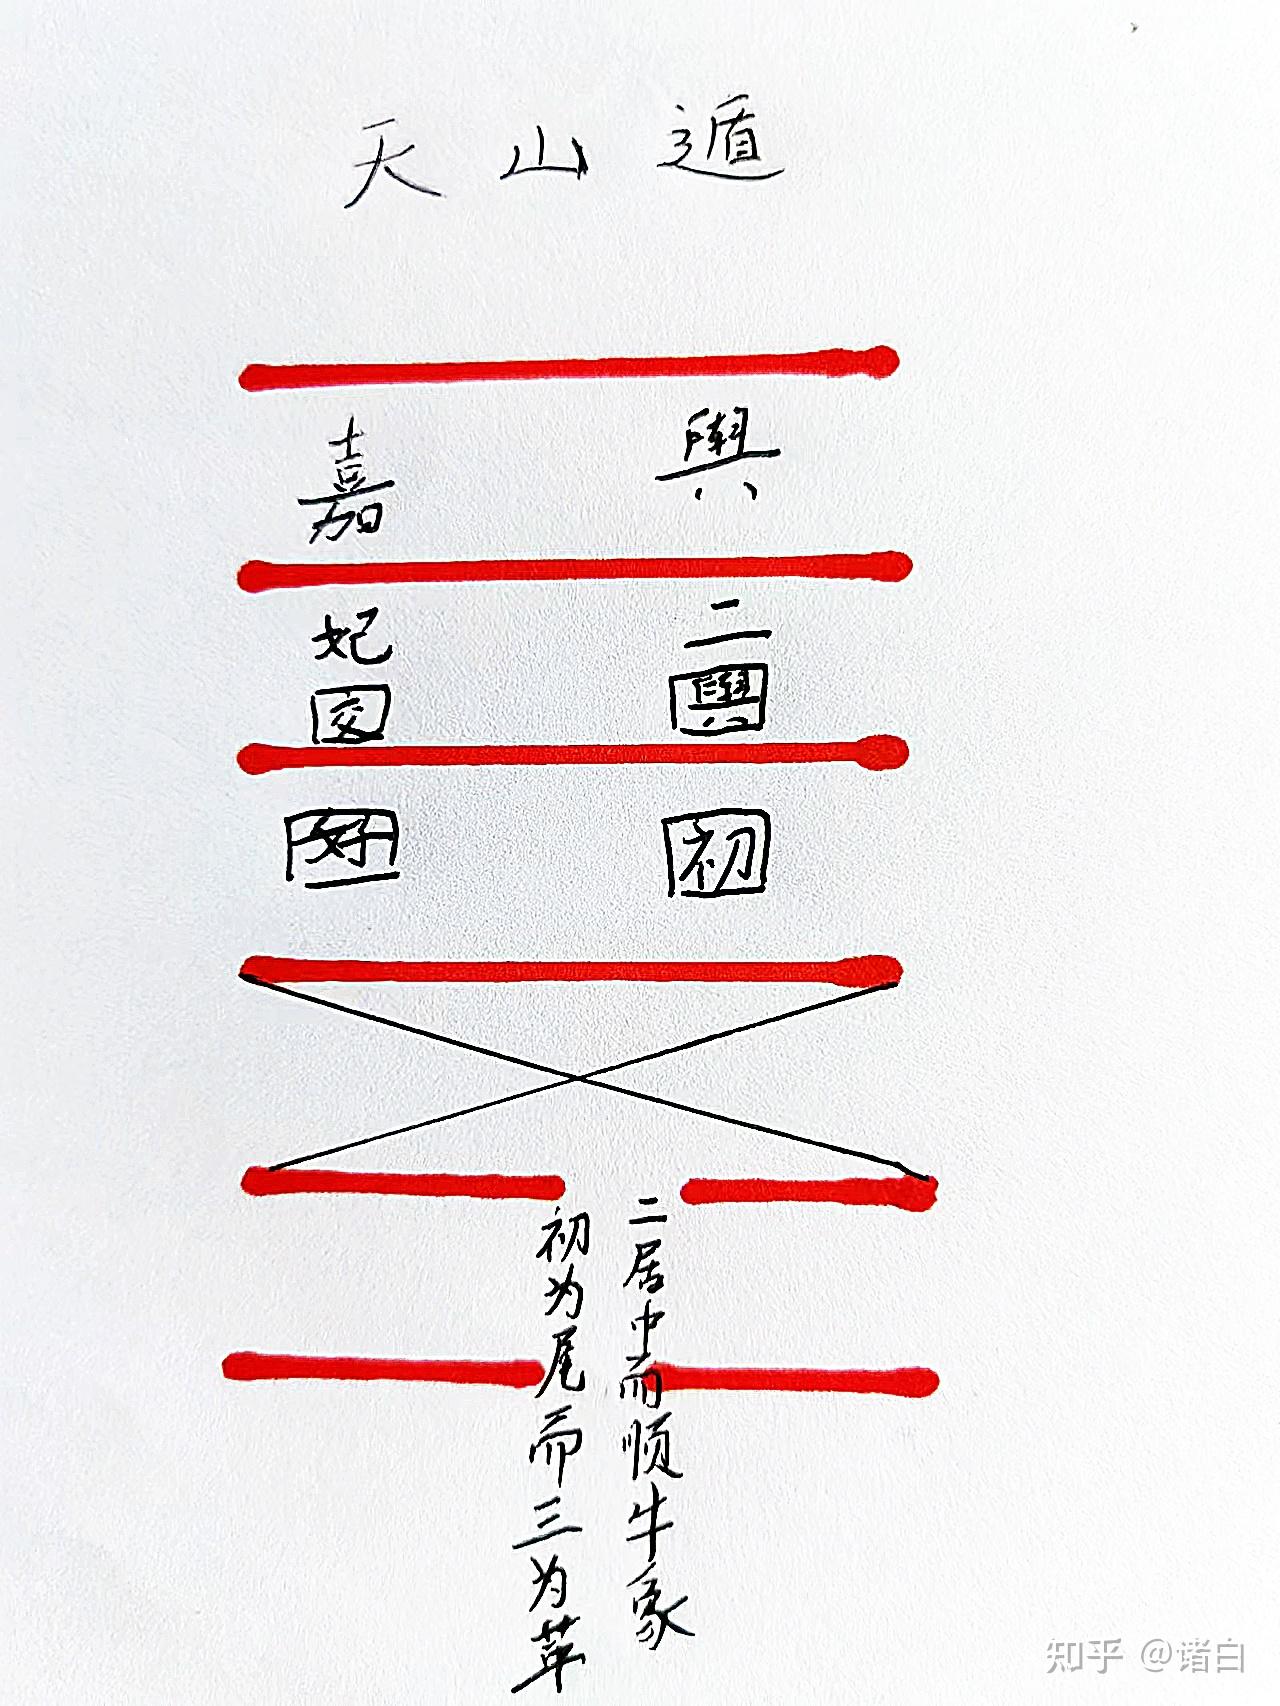 天山遁
嘉 與
妃 二
交 與
好 初
二居中而顺牛象
初为尾而三为革
知乎 @诸白